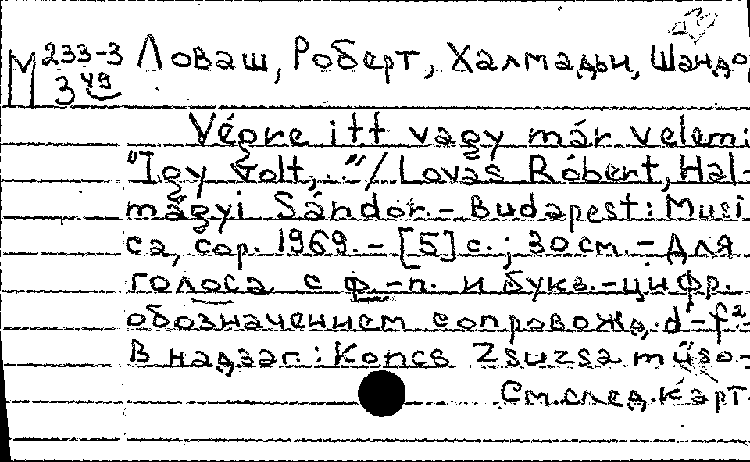 М 233-3 Ловаш, Роберт, Халмадьи, Шандо
3 49
Végre itt vagy már velem:
"Igy volt, .."/ Lovás Róbert, Hal-
mágyi Sándor.- Budapest: Musi
ca, cop. 1969. - [5] с.; 30 см. - Для
голоса с ф.-п. и букв.-цифр.
обозначением сопровожд. d¹-f²-
В надзаг.: Koncs Zsuzsa müso-
См. след. карт